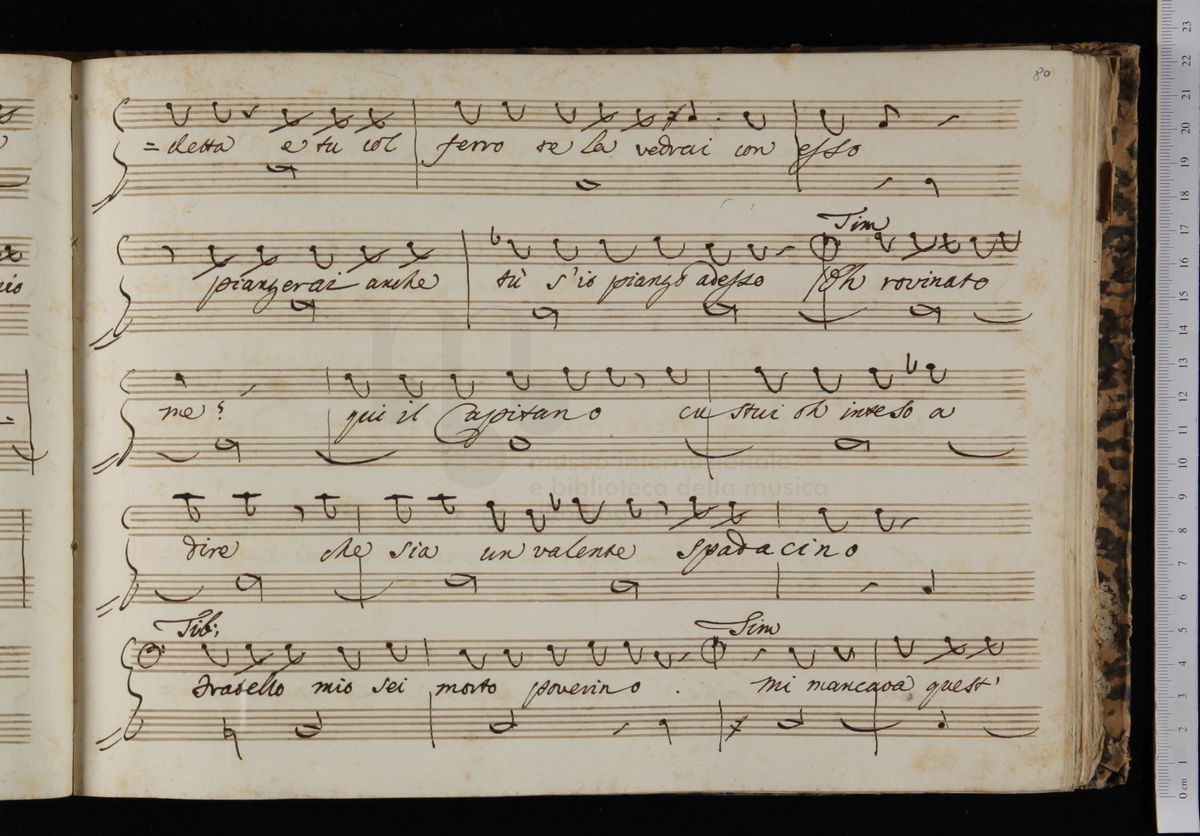 80
=detta e tu col ferro te la vedrai con esso
Tim
piangerai anche tù s'io piango adesso Oh rovinato
me? qui il Capitano custui oh inteso a
museo internazionale
e biblioteca della musica
dire che sia un valente spadacino
Tib: Tim
Fratello mio sei morto poverino. Mi mancava quest'
0 cm 1 2 3 4 5 6 7 8 9 10 11 12 13 14 15 16 17 18 19 20 21 22 23